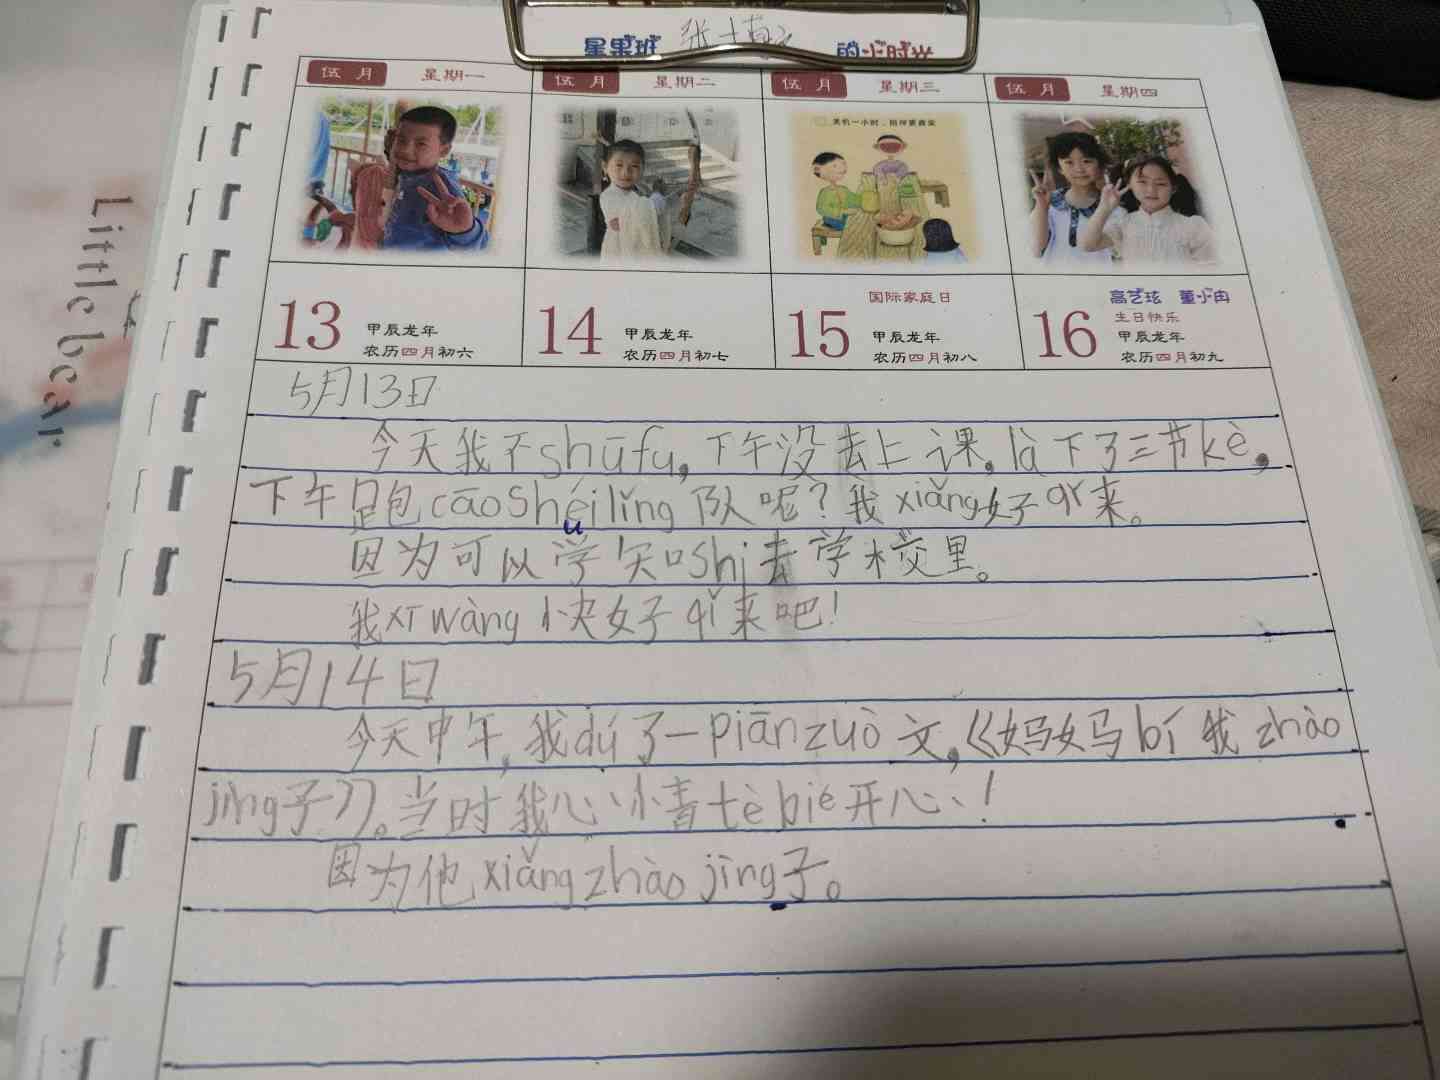 星果班 张 的小时光
伍 月 星期一 伍 月 星期二 伍 月 星期三 伍 月 星期四
关机一小时,陪伴更真实
13 甲辰龙年 农历四月初六
14 甲辰龙年 农历四月初七
国际家庭日
15 甲辰龙年 农历四月初八
高艺玹 董小冉
生日快乐
16 甲辰龙年 农历四月初九
5月13日
今天我不shūfu,下午没去上课,là下了三节kè,
下午足包cāoshéiling队呢?我xiǎng好qǐ来。
u
因为可以学知shi去学校里。
我xīwàng快好qǐ来吧!
5月14日
今天中午,我dú了一piānzuò文,《妈妈bǐ我zhào
jìng子》。当时我心情tèbié开心!
因为他xiǎngzhàojìng子。
Little bear